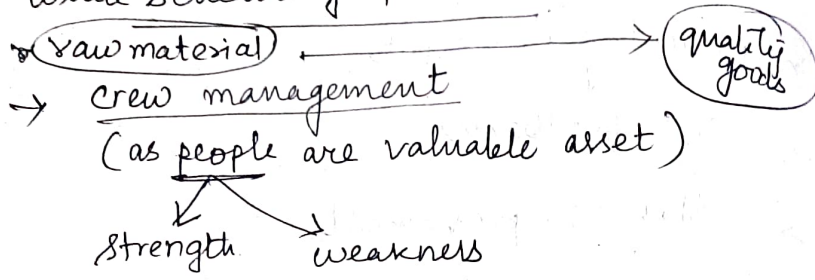 raw material → quality goods
→ crew management
(as people are valuable asset)
strength weakness